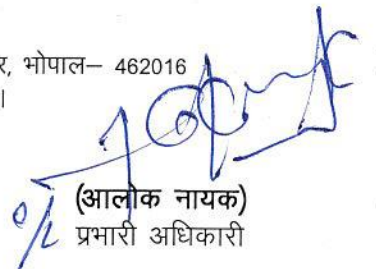 र, भोपाल– 462016
।
(आलोक नायक)
प्रभारी अधिकारी